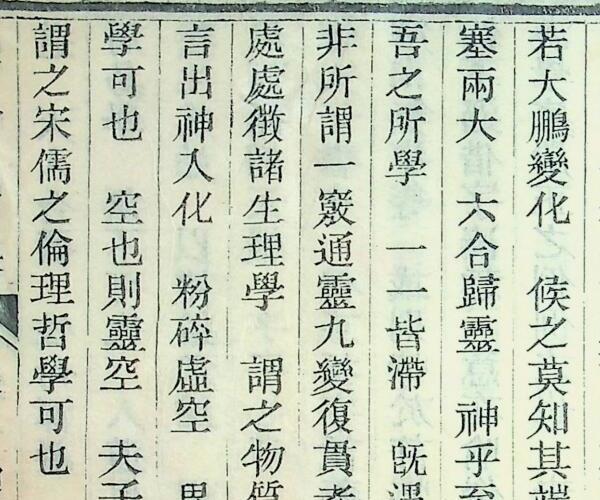 若大鵬變化　倏之莫知其端
塞兩大　六合歸靈　神乎至
吾之所學　一一皆滯　旣遇
非所謂一竅通靈九變復貫者
處處徵諸生理學　謂之物質
言出神入化　粉碎虛空　異
學可也　空也則靈空　夫子
謂之宋儒之倫理哲學可也